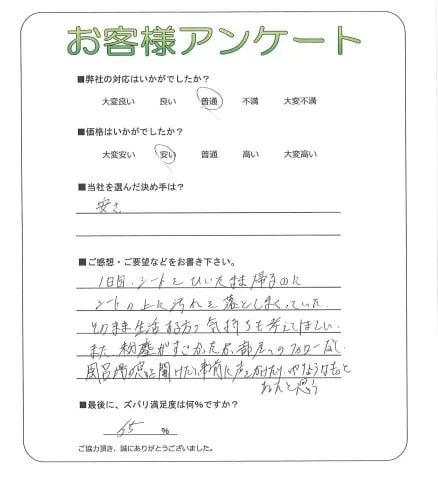 お客様アンケート
■弊社の対応はいかがでしたか?
大変良い 良い 普通 不満 大変不満
■価格はいかがでしたか?
大変安い 安い 普通 高い 大変高い
■当社を選んだ決め手は?
安さ
■ご感想・ご要望などをお書き下さい。
1日目、シートをひいたまま帰るのに
シートの上に汚れを落としまくっていた。
そのまま生活する方の気持ちも考えてほしい。
また粉塵がすごかったが、部屋へのフォローなし。
風呂場の窓を開けたり、事前に声をかけたり、やりようはもっと
あったと思う
■最後に、ズバリ満足度は何%ですか?
65 %
ご協力頂き、誠にありがとうございました。